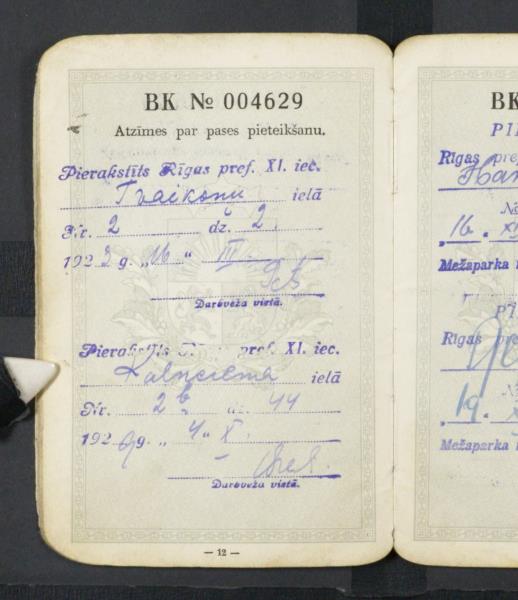 BK № 004629
Atzīmes par pases pieteikšanu.
Pierakstīts Rīgas pref. XI. iec.
Tvaikonu ielā
Nr. 2 dz. 2.
192 g. „16" III
Darbveža vietā.
Pierakstīts pref. XI. iec.
Kalnciema ielā
Nr. 2b dz. 44
1929 g. „4" X.
Darbveža vietā.
— 12 —
BK
Rīgas pref
16. XI
Mežaparka
Rīgas pre
19.
Mežaparka